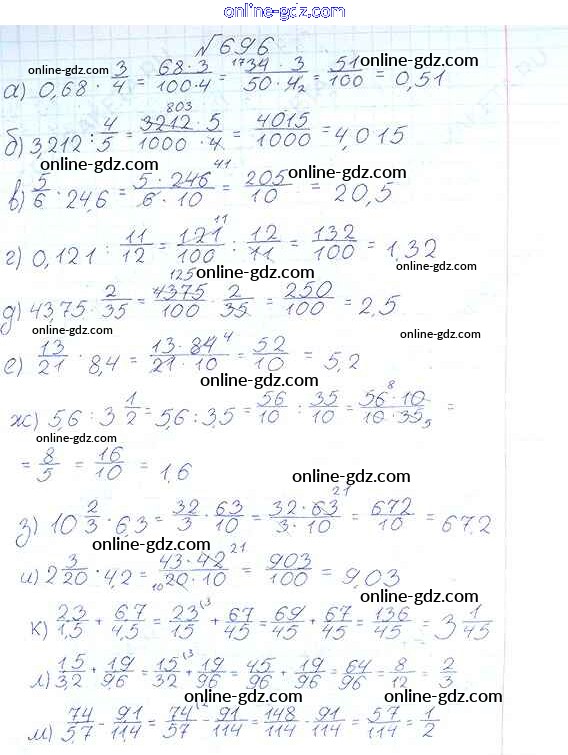 online-gdz.com
№696
а) 0,68 · 3/4 = 68·3/100·4 = 17 34 · 3/50 · 4 2 = 51/100 = 0,51
online-gdz.com
803
б) 3,212 : 4/5 = 3212 · 5/1000 · 4 = 4015/1000 = 4,015
online-gdz.com
в) 5/6 · 24,6 = 5 · 246 41/6 · 10 = 205/10 = 20,5
online-gdz.com
г) 0,121 : 11/12 = 121 11/100 : 12/11 = 132/100 = 1,32
online-gdz.com
д) 43,75 · 2/35 = 125 4375/100 · 2/35 = 250/100 = 2,5
online-gdz.com
е) 13/21 · 8,4 = 13 · 84 4/21 · 10 = 52/10 = 5,2
online-gdz.com
ж) 5,6 : 3 1/2 = 5,6 : 3,5 = 56/10 : 35/10 = 56 8 · 10/10 · 35 5 =
online-gdz.com
= 8/5 = 16/10 = 1,6
online-gdz.com
з) 10 2/3 · 6,3 = 32/3 · 63/10 = 32 · 63 21/3 · 10 = 672/10 = 67,2
online-gdz.com
и) 2 3/20 · 4,2 = 43 · 42 21/10 20 · 10 = 903/100 = 9,03
online-gdz.com
к) 2,3/1,5 + 6,7/4,5 = 23/15 (3 + 67/45 = 69/45 + 67/45 = 136/45 = 3 1/45
online-gdz.com
л) 1,5/3,2 + 1,9/9,6 = 15/32 (3 + 19/96 = 45/96 + 19/96 = 64/96 = 8/12 = 2/3
online-gdz.com
м) 7,4/5,7 - 9,1/11,4 = 74/57 (2 - 91/114 = 148/114 - 91/114 = 57/114 = 1/2
online-gdz.com